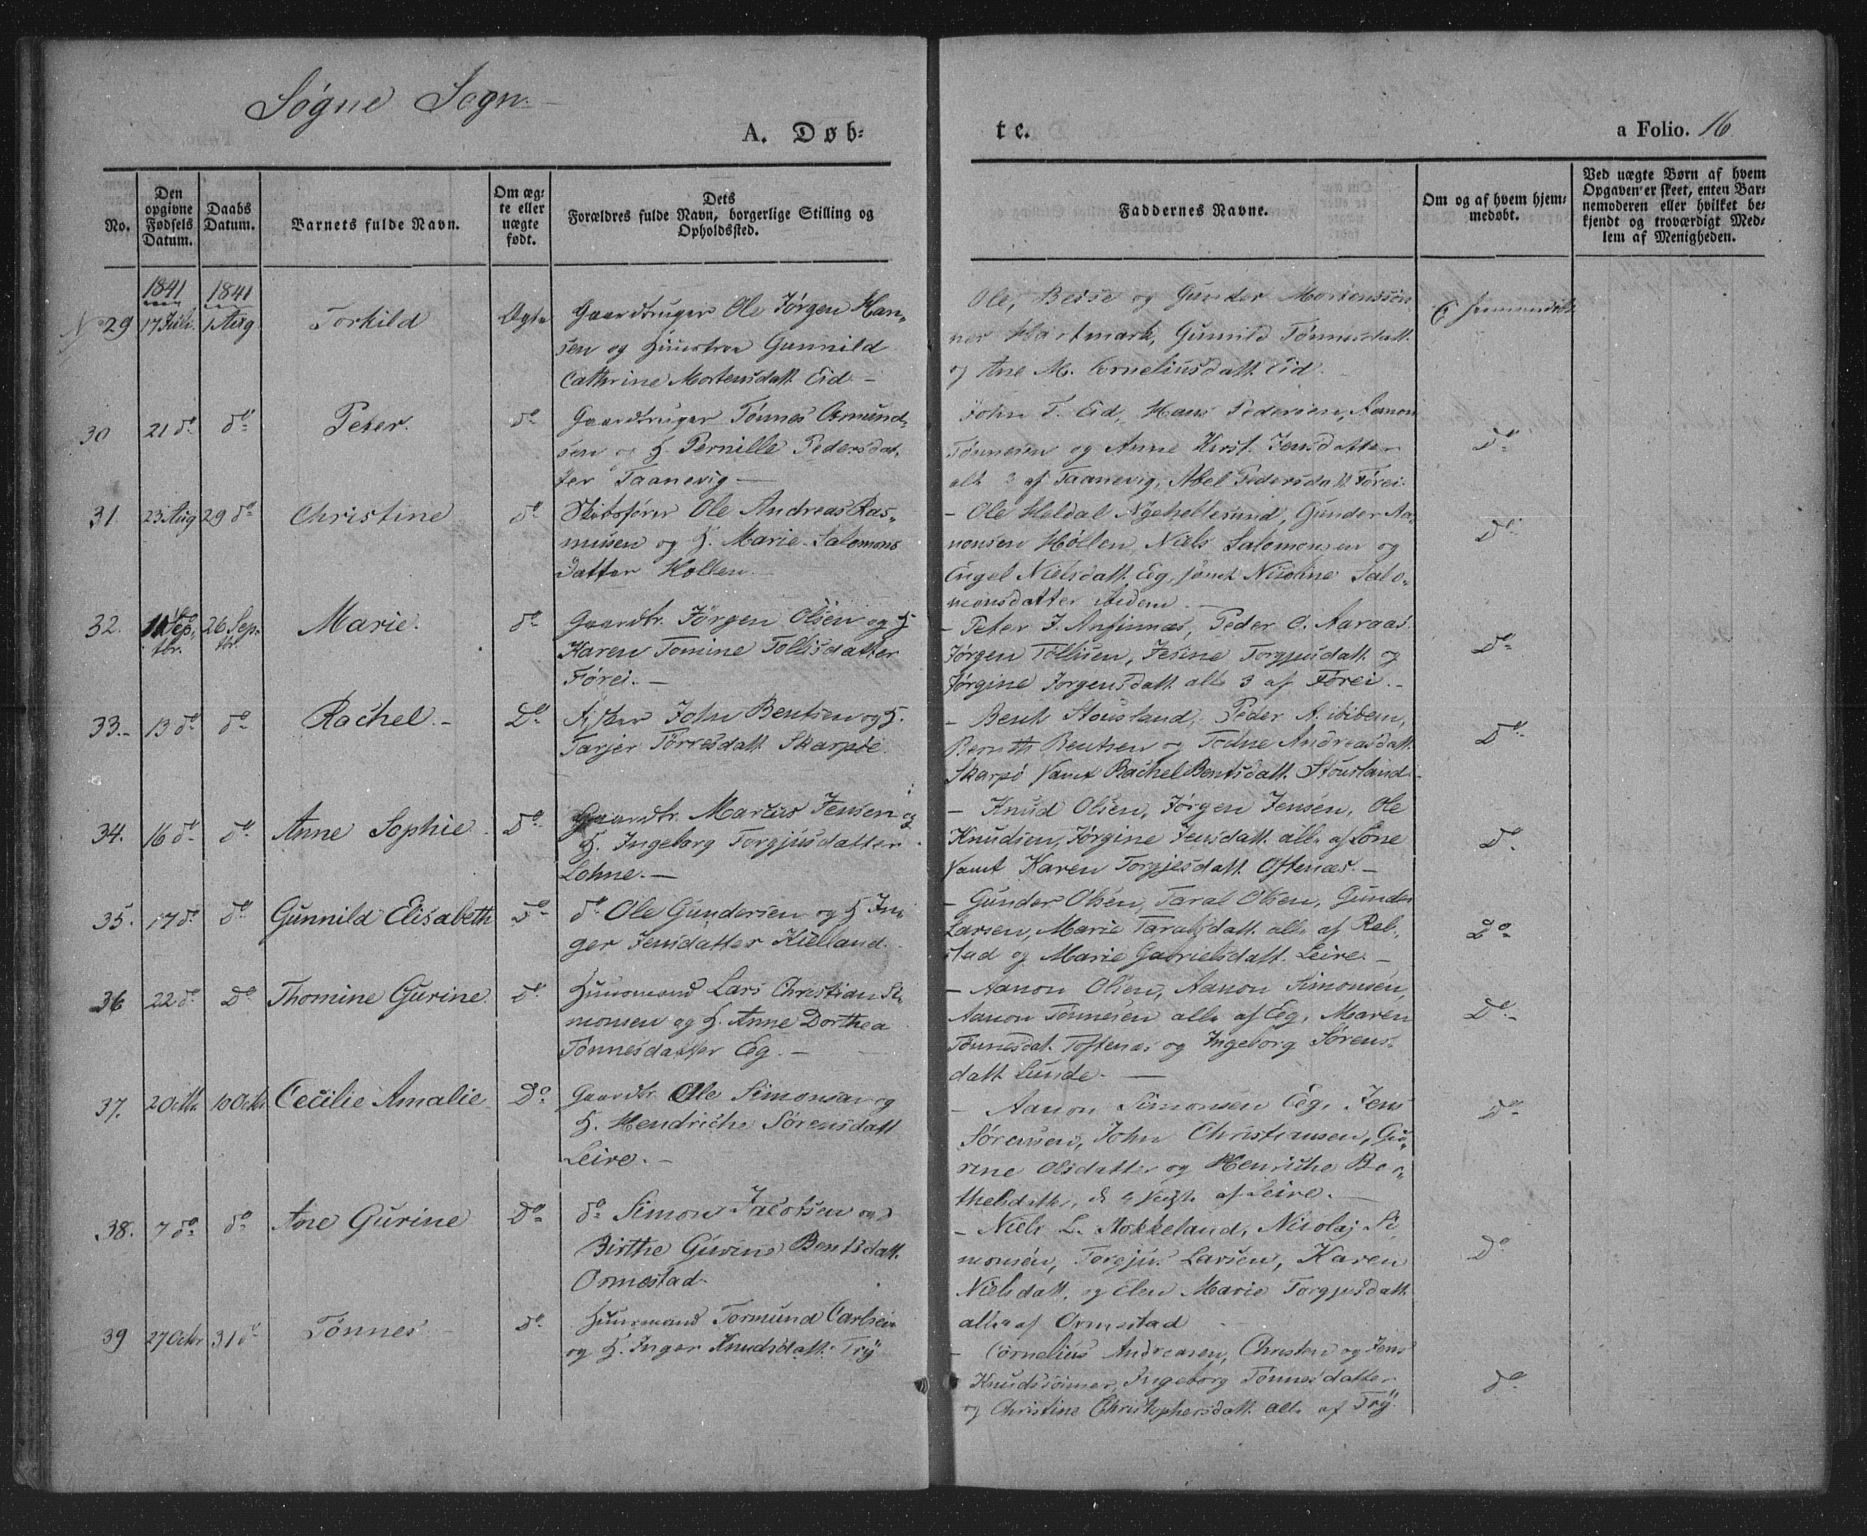 Søgne Sogn.
A. Døb-
te.
a Folio. 16
No.
Den opgivne Fødsels Datum.
Daabs Datum.
Barnets fulde Navn.
Om ægte eller uægte født.
Dets Forældres fulde Navn, borgerlige Stilling og Opholdssted.
Faddernes Navne.
Om og af hvem hjemmedøbt.
Ved uægte Børn af hvem Opgaven er skeet, enten Barnemoderen eller hvilket bekjendt og troværdigt Medlem af Menigheden.
1841 1841
No 29 17 Juli 1 Aug Torkild Ægte Gaardbruger Ole Jørgen Han-
sen og Huustroe Gunnild
Cathrine Mortensdatt. Eid
Ole, Beise og Gunder Mortenssøn-
ner Hartmark, Gunnild Tønnesdatt.
og Ane M. Corneliusdatt. Eid.
30 21 do do Peter. do Gaardbruger Tønnes Osmund-
sen og H. Pernille Pedersdat-
ter Taanevig
John T. Eid, Hans Pedersen, Aanon
Tønnesen og Anne Kirst. Jensdatter
alle 3 af Taanevig, Abel Pedersdatt. Førei.
Do
31. 23 Aug 29 do Christine do Skibsfører Ole Andreas Ras-
musen og H. Marie Salomons
datter Høllen.
- Ole Heldal Ny Hellesund, Gunder Aa-
nonsen Høllen, Niels Salomonsen og
Engel Nielsdatt. Eeg, samt Nicoline Salo-
monsdatter ibidem.
Do
32. 11 Sep- tbr. 26 Sep- tbr. Marie. do Gaardbr. Jørgen Olsen og H
Karen Tomine Tollisdatter
Førei.
- Peter J. Amfinnæs, Peder C. Aaraas
Jørgen Tollisen, Jesine Torgjusdatt og
Jørgine Jørgensdatt alle 3 af Førei.
Do
33. 13 do do Rachel. Do Fisker John Bentsen og H.
Tarjer Torresdatt. Skarpøe.
- Bent Stousland, Peder A. ibidem,
Bernth Bentsen og Todne Andreasdatt.
Skarpø samt Rachel Bentsdatt. Stousland
Do
34. 16 do do Anne Sophie Do Gaardbr. Marcus Jensen og
H. Ingeborg Torgjusdatter
Lohne.
- Knud Olsen, Jørgen Jensen, Ole
Knudsen, Jørgine Jensdatt. alle af Lone
samt Karen Torgjesdatt. Oftenæs.
Do
35. 17 do Do Gunnild Elisabeth Do do Ole Gundersen og H. In-
ger Jensdatter Kielland.
- Gunder Olsen, Taral Olsen, Gunder
Larsen, Marie Taralsdatt. alle af Reb-
stad og Marie Gabrielsdatt. Leire.
Do
36 22 do Do Thomine Gurine do Huusmand Lars Christian Si-
monsen og H. Anne Dorthea
Tønnesdatter Eeg.
- Aanon Olsen, Aanon Simonsen,
Aanon Tønnesen alle af Eeg, Maren
Tønnesdat. Toftenæs og Ingeborg Sørens-
datt Lunde.
Do
37. 2 Octbr 10 Octbr Cecilie Amalie Do Gaardbr. Ole Simonsen og
H. Hendriche Sørensdatt
Leire.
- Aanon Simonsen Eeg, Jens
Sørensen, John Christiansen, Gu-
rine Olsdatter og Henriche Ba-
thelsdatter, de 4 sidste af Leire.
Do
38. 7 do do Ane Gurine Do do Simon Jacobsen og
Birthe Gurine Bentsdatt.
Ormestad.
- Niels L. Stokkeland, Nicolaj Si-
monsen, Torgjus Larsen, Karen
Nielsdatt. og Elen Marie Torgjusdatt
alle af Ormestad
Do
39 27 Octbr 31 do Tønnes Do Huusmand Tormund Carlsen
og H. Inger Knudsdatt. Trÿ
- Cornelius Andreasen, Christen og Jens
Knudssønner, Ingeborg Tønnesdatter
og Christine Christophersdatt. alle af Trÿ.
do